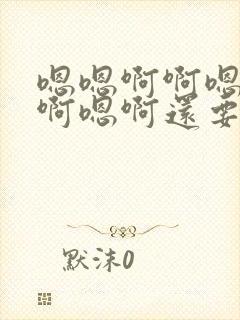 嗯嗯啊啊嗯
啊嗯啊還要
默沫0